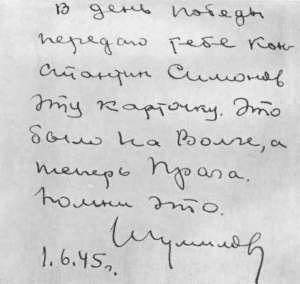 В день победы
передаю тебе Кон-
стантин Симонов
эту карточку. Это
было на Волге, а
теперь Прага.
Помни это.
Шумилов
1.6.45г.